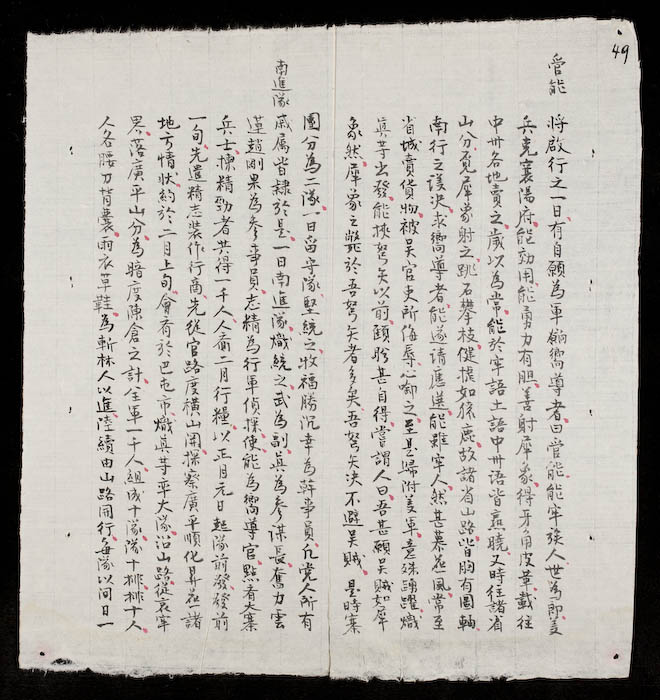 49
管能
將啟行之一日有自願為軍嚮導者曰管能能牢族人世為即美
兵克襄陽府能効用能勇力有胆善射犀象得牙角皮革載往
中州各地賣之歲以為常能於牢語土語中州語皆熟曉又時往諸省
山分覓犀象射之跳石攀枝健捷如猱鹿故諸省山路皆胸有圖軸
南行之議決求嚮導者能遂請應選能雖牢人然甚慕華風常至
省城賣貨物被吳官吏所侮辱心啣之至是歸附美軍意殊踴躍熾
真等出發能挾弩矢以前顧盼甚自得嘗謂人曰吾甚願吳賊如犀
象然犀象之斃於吾弩矢者多矣吾弩矢決不避吳賊 是時寨
團分為二隊一曰留守隊堅統之牧福勝沉幸為幹事員凡党人所有
南進隊
戚属皆隸於是一曰南進隊熾統之武為副真為參謀長奮力雲
蓮趙剛果為參事員志精為行軍偵探使能為嚮導官點看大寨
兵士揀精勁者共得一千人人齎二月行糧以正月元日起隊前發發前
一旬先遣精志裝作行商先從官路度橫山關探察廣平順化昇華諸
地方情狀約於二月上旬會看於巴屯市熾真等率大隊沿山路從哀牢
界落廣平山分為暗度陳倉之計全軍一千人組成十隊隊十排排十人
人各腰刀背囊雨衣草鞋為斬林人以進陸續由山路開行每隊以間日一